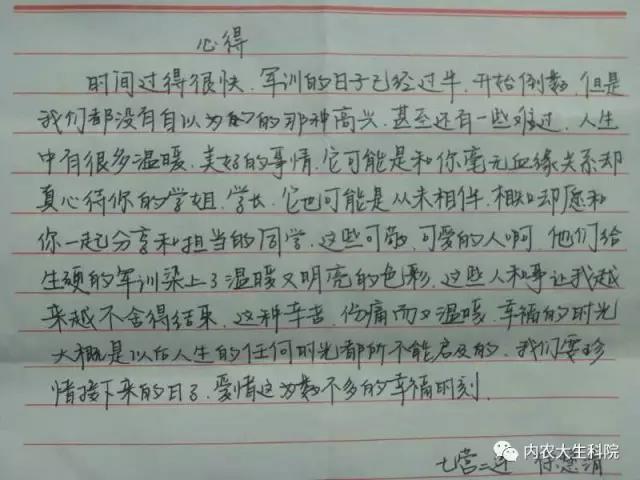 心得
时间过得很快，军训的日子已经过半，开始倒数，但是
我们都没有自以为的的那种高兴，甚至还有一些难过，人生
中有很多温暖，美好的事情，它可能是和你毫无血缘关系却
真心待你的学姐，学长，它也可能是从未相伴，相知却愿和
你一起分享和担当的同学，这些可敬，可爱的人啊，他们给
生硬的军训染上了温暖又明亮的色彩，这些人和事让我越
来越不舍得结束，这种辛苦，伤痛而又温暖，幸福的时光
大概是以后人生的任何时光都所不能启及的，我们要珍
惜接下来的日子，爱惜这为数不多的幸福时刻。
七营二连 徐
内农大生科院